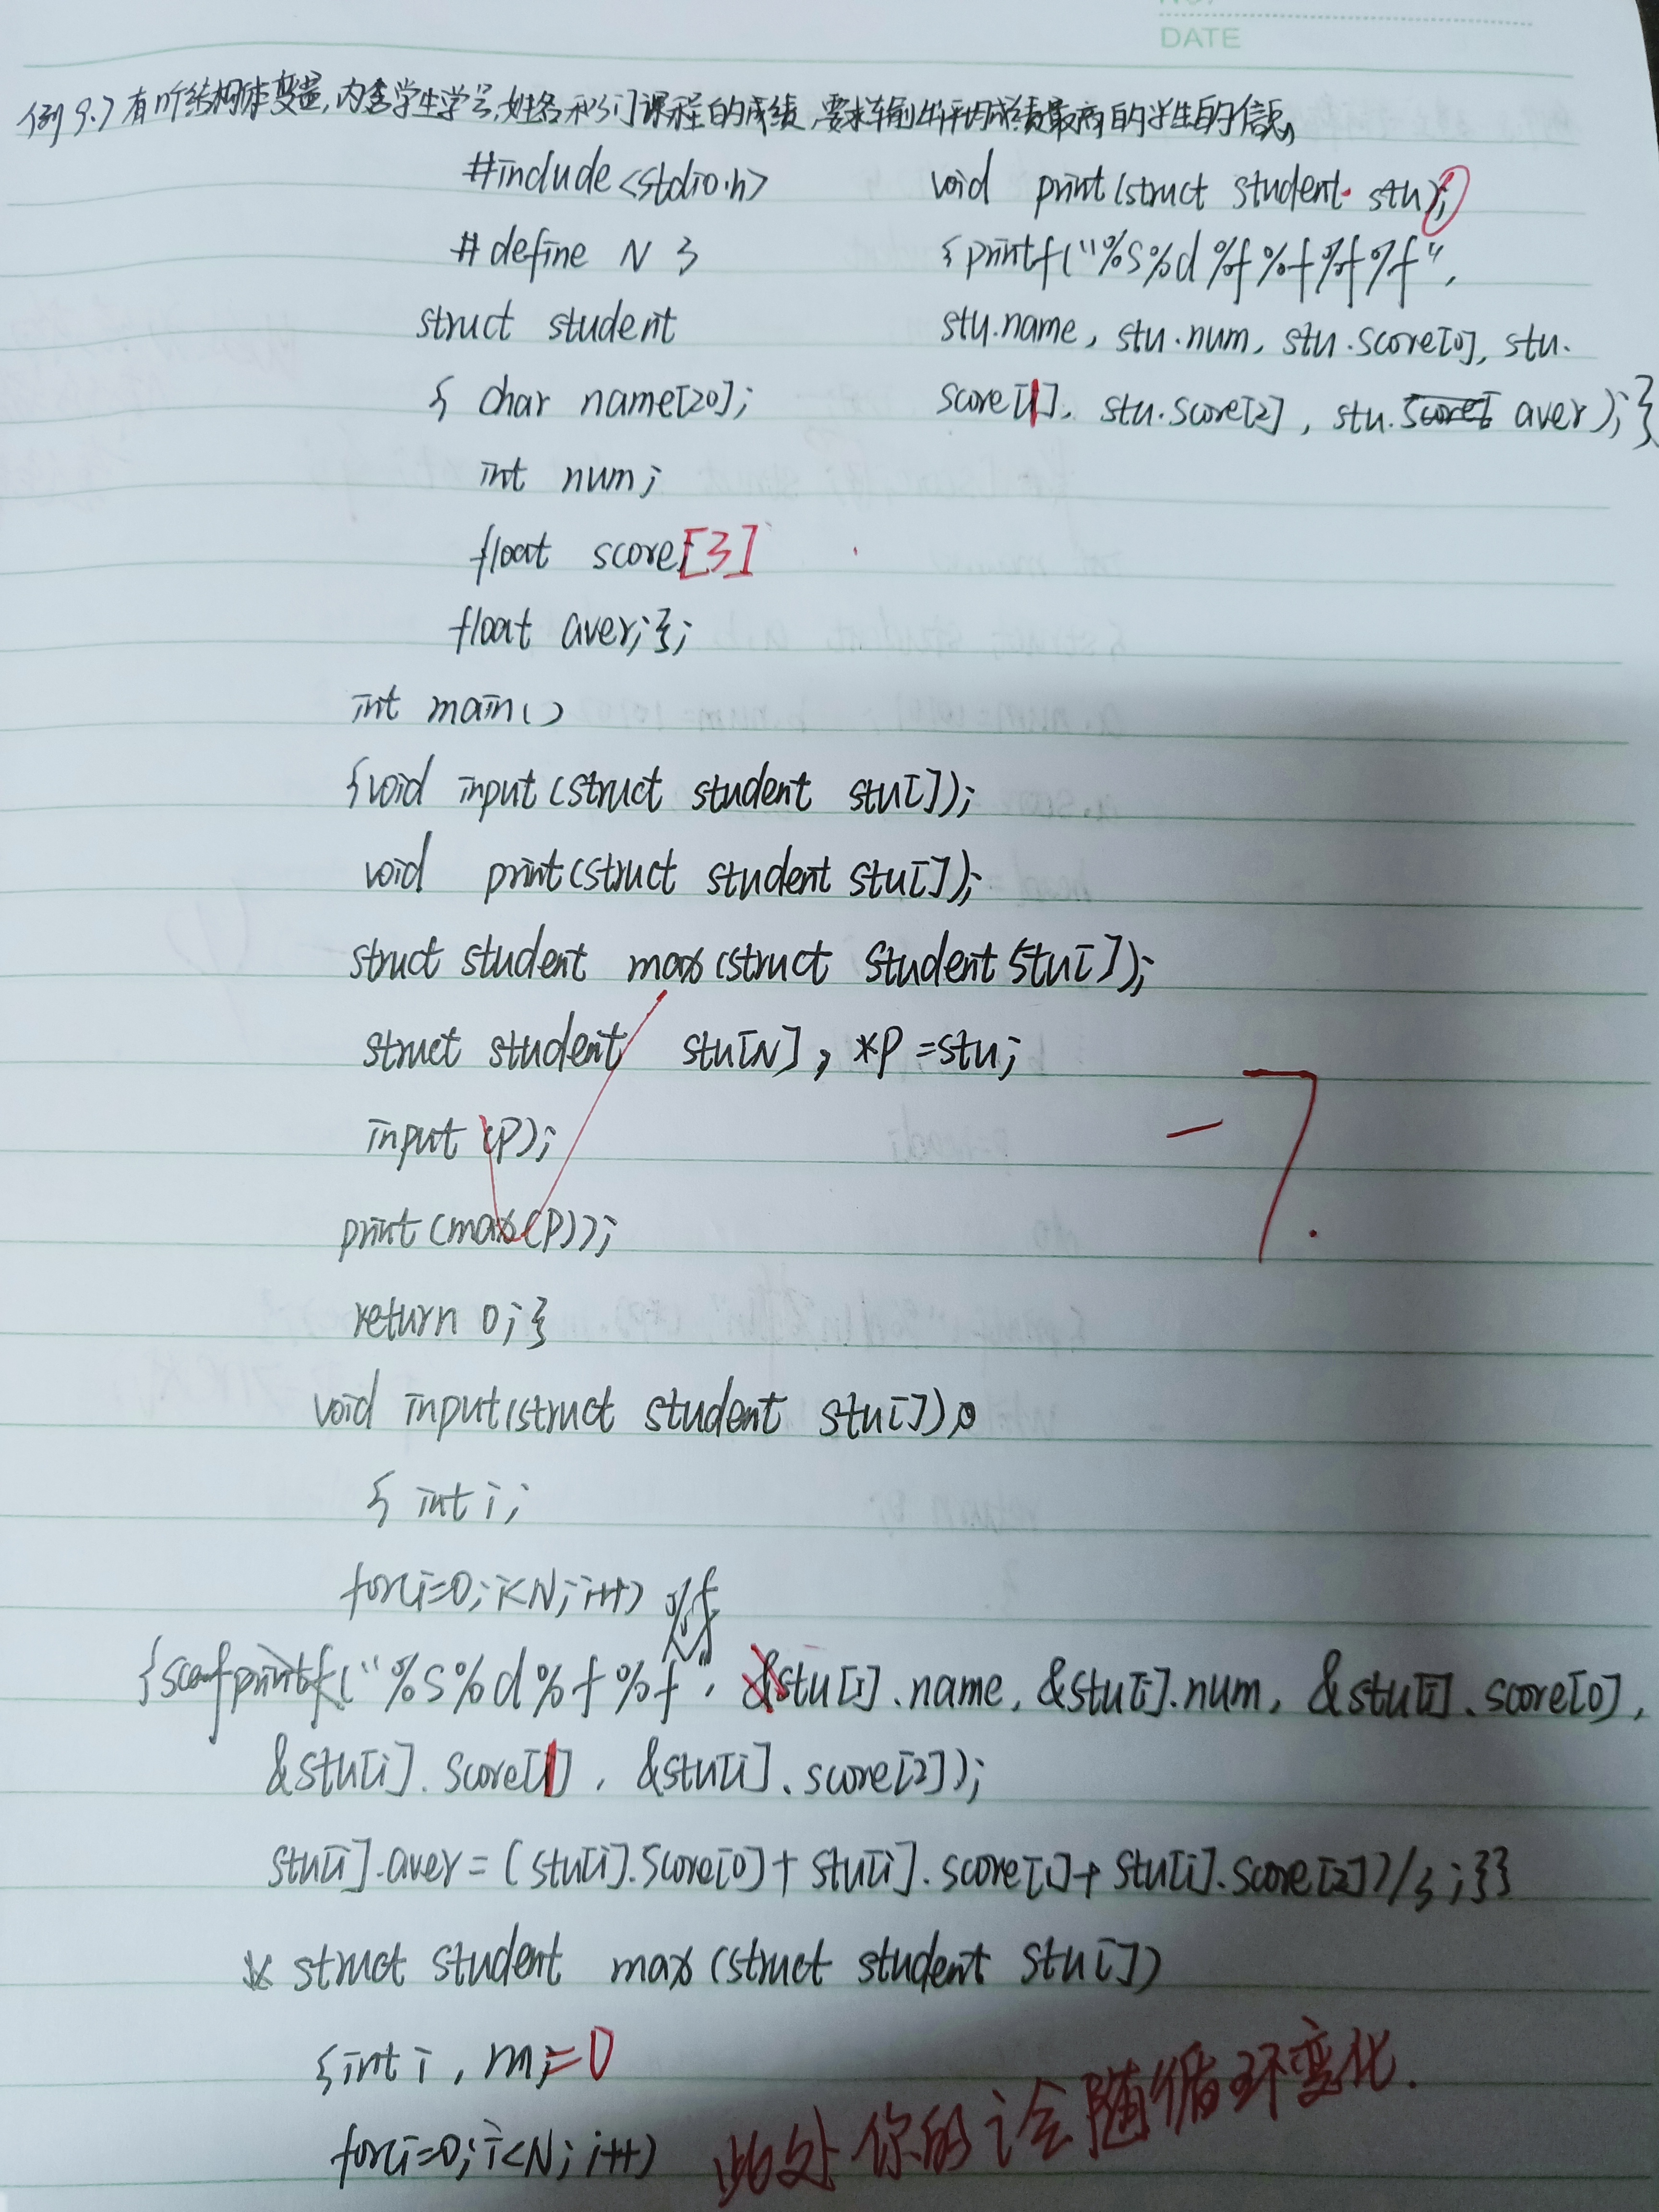 DATE
例9.7 有n个结构体变量,内含学生学号,姓名和3门课程的成绩,要求输出平均成绩最高的学生的信息,
#include<stdio.h>
#define N 3
struct student
{ char name[20];
int num;
float score[3]
float aver;};
int main()
{void input(struct student stu[]);
void print(struct student stu[]);
struct student max(struct student stu[]);
struct student stu[N], *P=stu;
input(P);
print(max(P));
return 0;}
void input(struct student stu[])
{ int i;
for(i=0;i<N;i++)
%f
{scanf("%s%d%f%f", stu[i].name, &stu[i].num, &stu[i].score[0],
&stu[i].score[1], &stu[i].score[2]);
stu[i].aver=(stu[i].score[0]+stu[i].score[1]+stu[i].score[2])/3;}}
* struct student max(struct student stu[])
{int i,m=0
for(i=0;i<N;i++) 此处你的i会随循环变化.
void print(struct student stu);
{printf("%s%d%f%f%f%f",
stu.name, stu.num, stu.score[0], stu.
score[1], stu.score[2], stu.aver);}
-7.